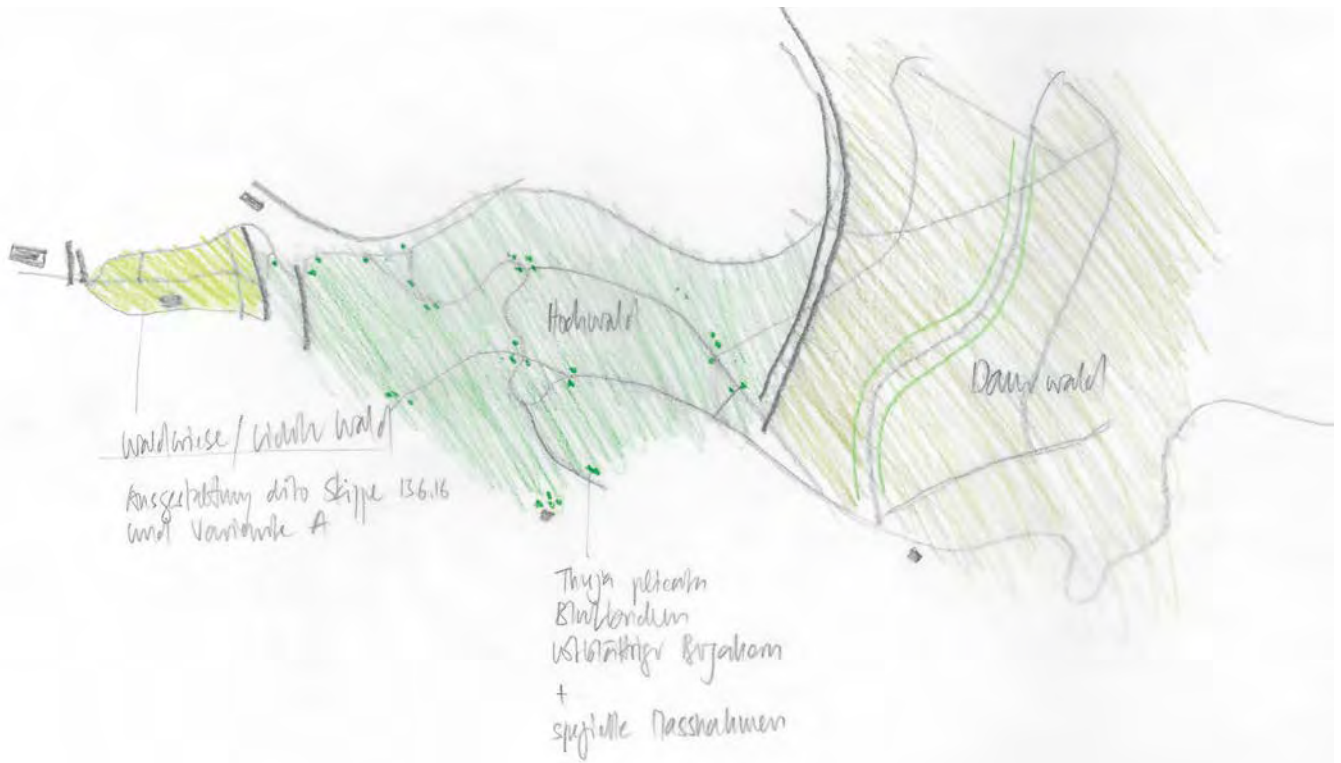 Hochwald
Dauerwald
Waldwiese / lichter Wald
Ausgestaltung dito Skizze 13.6.16
und Variante A
Thuja plicata
Blutbuchen
Bergahorn
+
spezielle Massnahmen